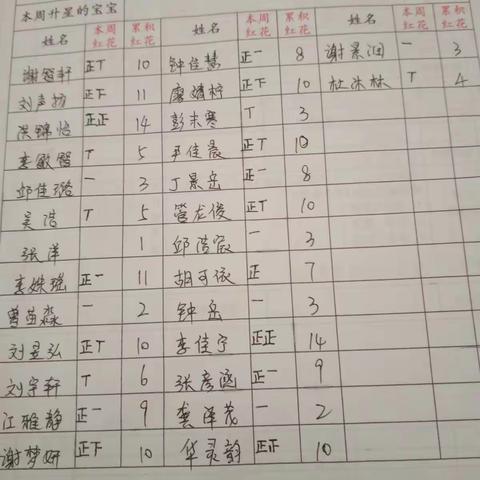 本周升星的宝宝
姓名 本周红花 累积红花 姓名 本周红花 累积红花 姓名 本周红花 累积红花
谢智轩 正T 10 钟佳慧 正一 8 谢景润 一 3
刘声扬 正下 11 廖婧柠 正下 10 杜沐林 T 4
洪锦怡 正正 14 彭末寒 T 3
李敏智 T 5 尹佳晨 正T 10
邱佳璐 一 3 丁景岳 正一 8
吴浩 T 5 管龙俊 正T 10
张洋 1 邱浩宸 一 3
李姝瑶 正一 11 胡可依 正 7
曾苗淼 一 2 钟岳 一 3
刘昱弘 正T 10 李佳宁 正正 14
刘宇轩 T 6 张彦涵 正一 9
江雅静 正一 9 龚泽茂 一 2
谢梦妍 正下 10 华灵韵 正正 10